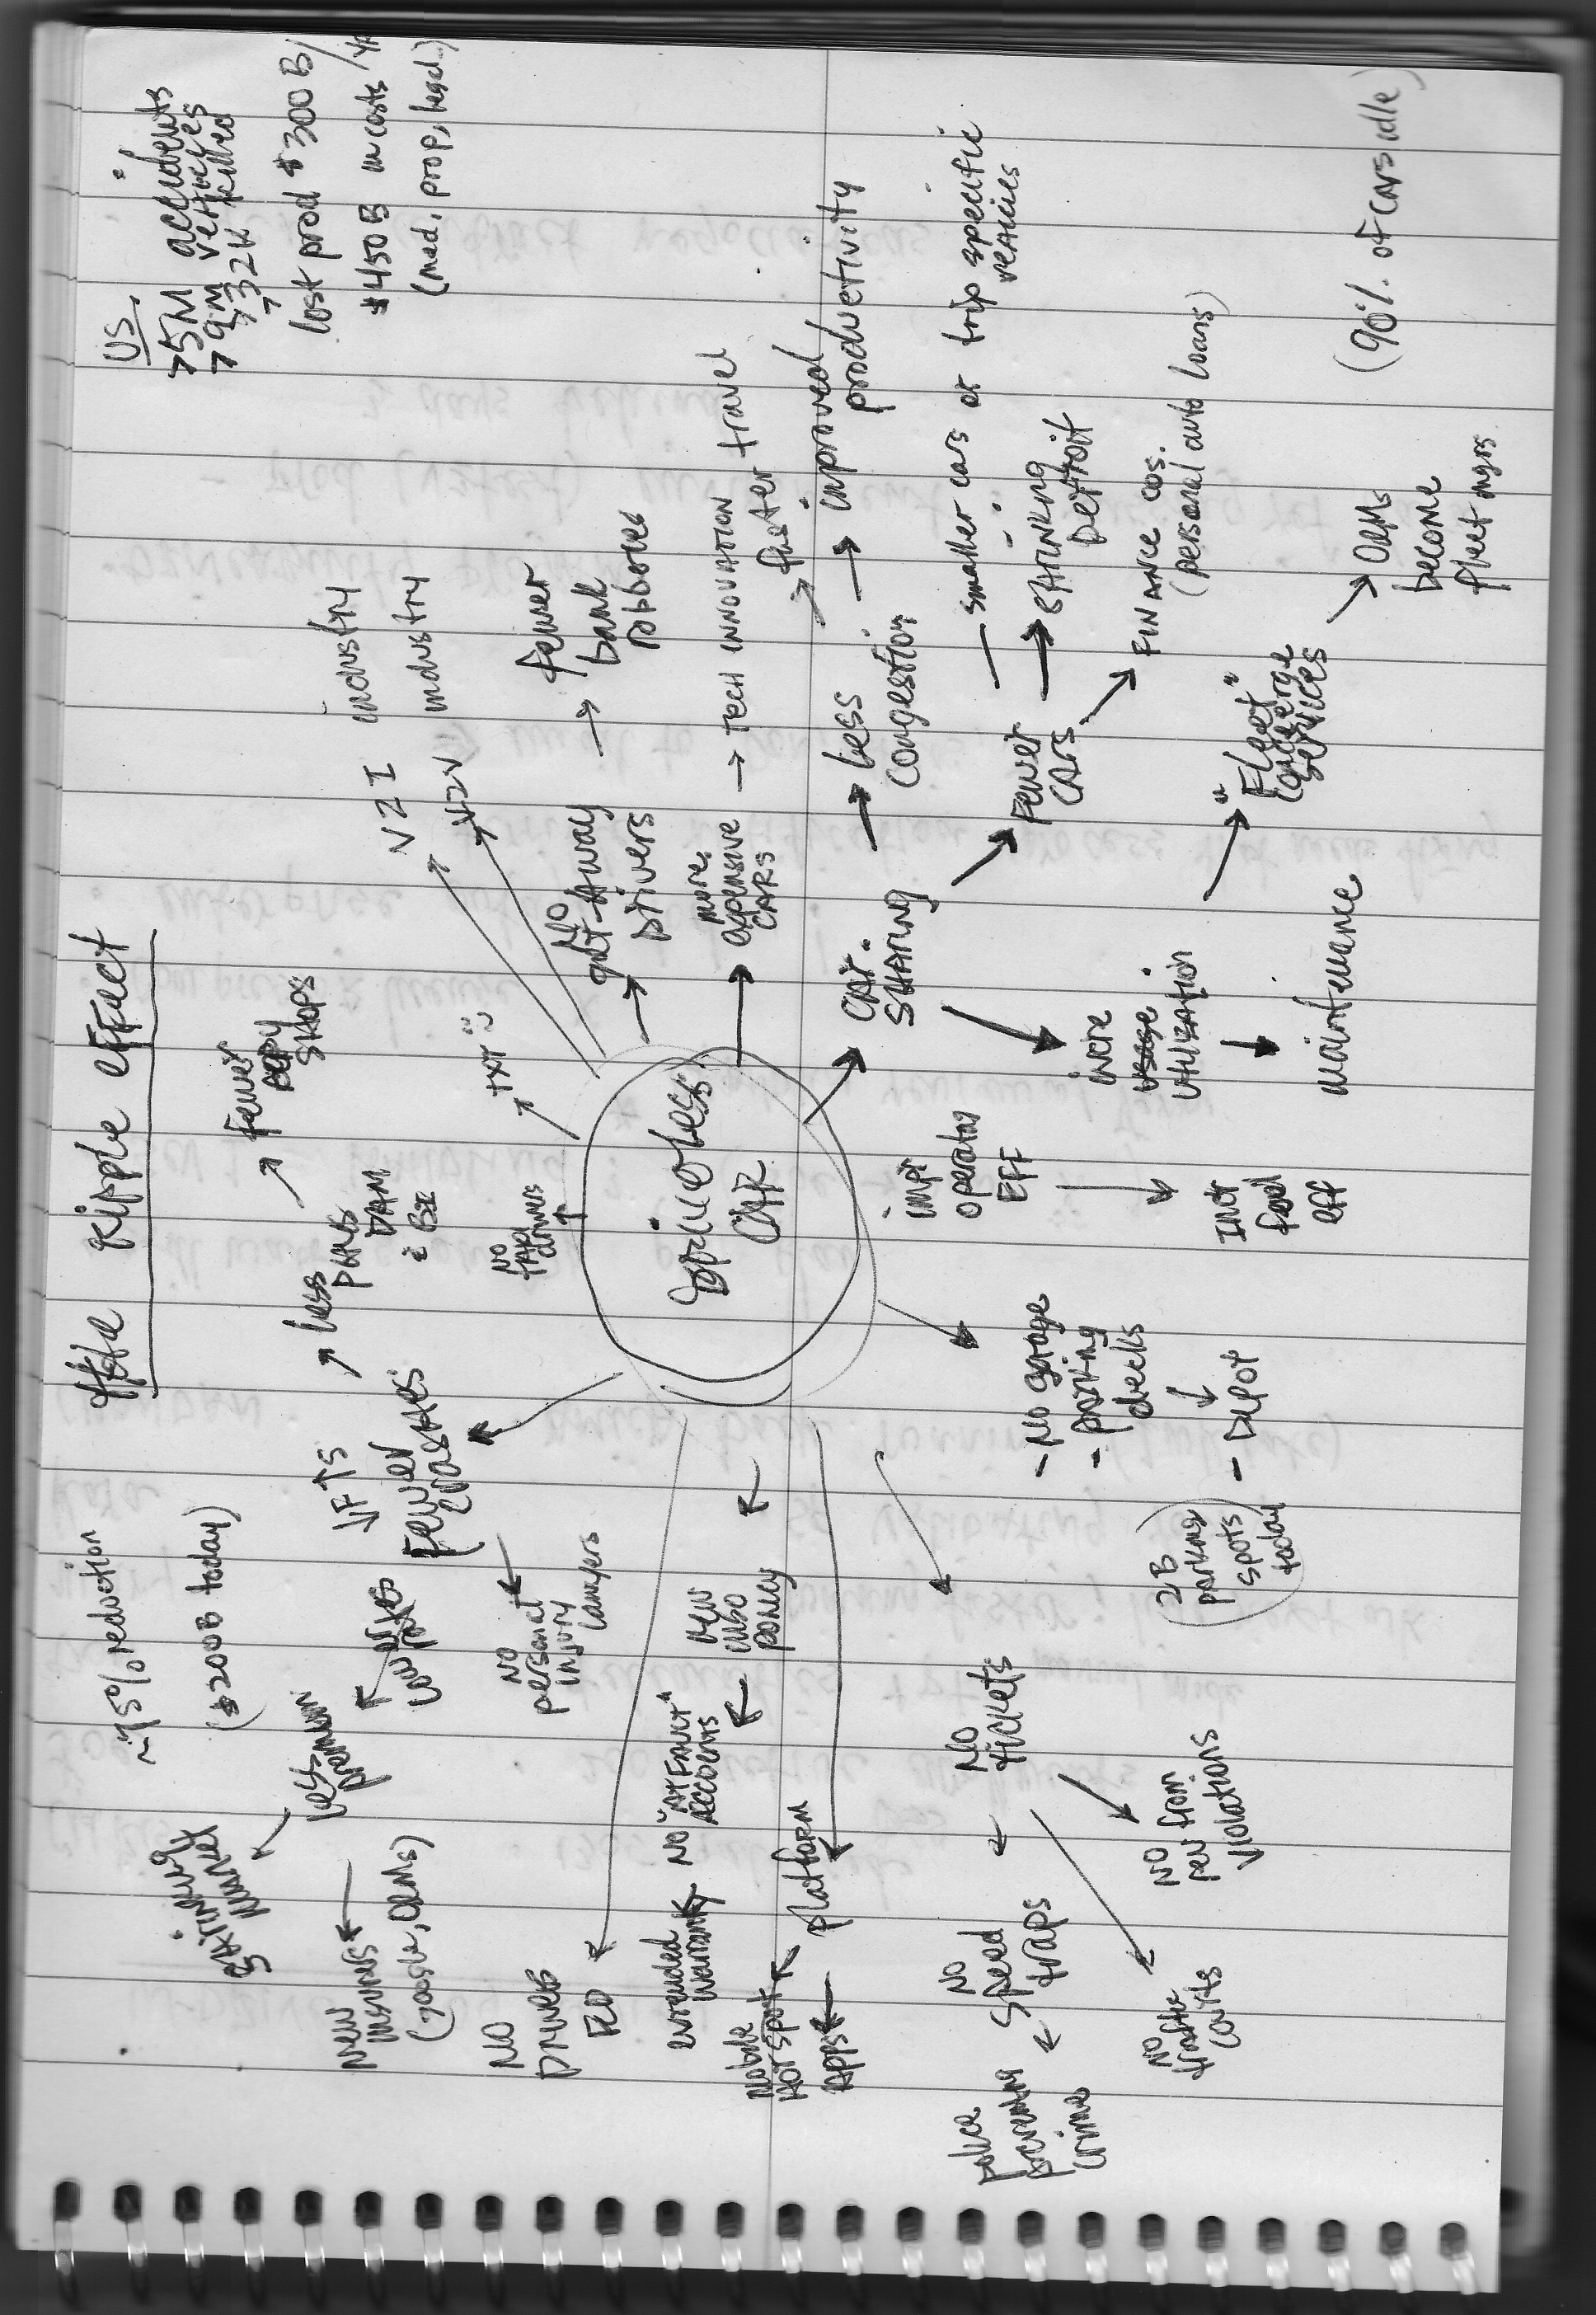 The Ripple Effect
US
>5M accidents
>9M vehicles
>32K killed
lost prod $300 B/yr
$450B in costs
(med, prop, legal..)
~75% reduction
($200B today)
shrinking
market
less
premium
low rates
↓F ↑S
Fewer
crashes
→ less
DAM
& BI
→ Fewer
Body
Shops
V2I industry
V2V industry
New
insurers
(google, OEMs)
NO
personal
injury
lawyers
NO
drivers
TXT
NO
get-Away
Drivers
→ fewer
bank
robberies
NO
Drivers
ED
Driverless
CAR
more
expensive
CARS
→ TECH INNOVATION
extended
warranty
NO "AT FAULT"
ACCIDENTS
new
policy
Mobile
HOTSPOT
APPS
Platform
CAR
SHARING
→ Less
congestion
→ faster travel
→ improved
productivity
impr
operator
EFF
Incr
fuel
eff
incr
usage
utilization
maintenance
Fewer
CARS
— smaller cars or trip specific
vehicles
→ shrinking
Detroit
FINANCE cos.
(personal auto loans)
"Fleet"
concierge
services
→ OEMs
become
fleet mgrs
(90% of cars idle)
- No garage
- parking
decks
- Depot
2B
parking
spots
today
NO
tickets
NO
speed
traps
police
preventing
crime
NO
rev from
violations
NO
traffic
courts